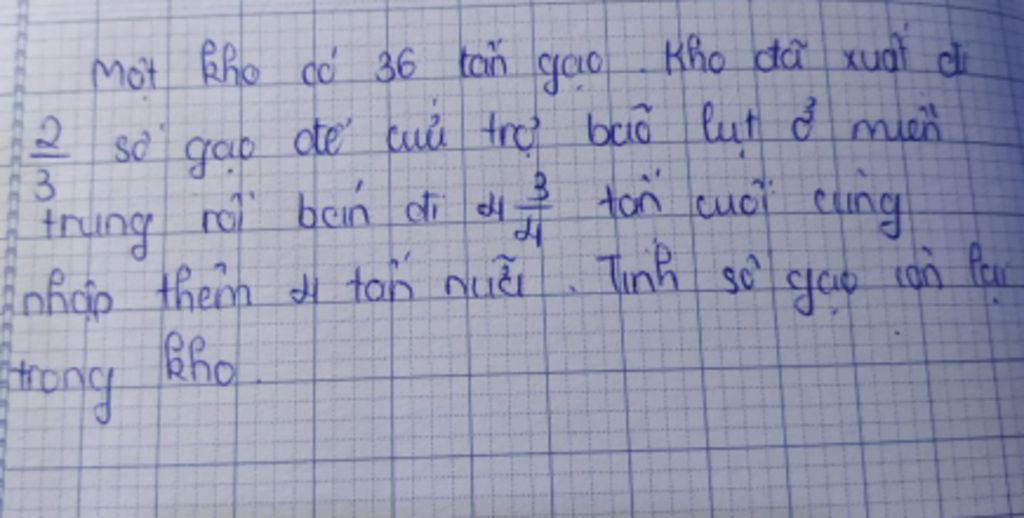 Một kho có 36 tấn gạo. Kho đã xuất đi
2/3 số gạo để cứu trợ bão lụt ở miền
trung rồi bán đi 4 3/4 tấn cuối cùng
nhập thêm 4 tấn nữa. Tính số gạo còn lại
trong kho.